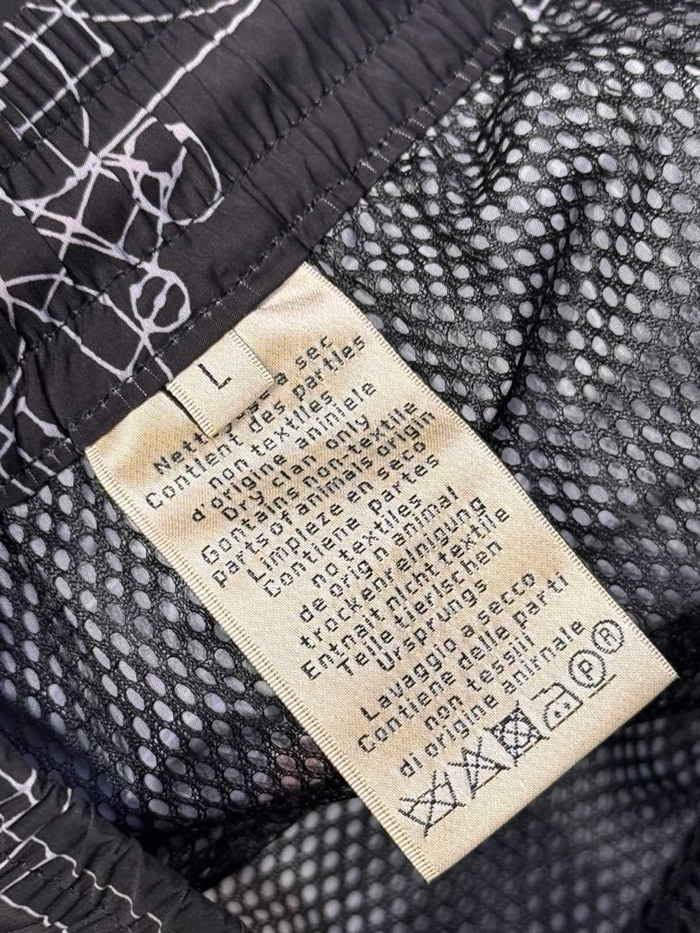 L
Nettoyage a sec
Contient des partles
non textiles
d'origine aniniele
Dry clan only
Gontains non-textile
parts of animals origin
Limpieze en seco
Contiene partes
no textiles
de orign animal
trockenrelnigung
Entnait nicht textile
Telle tierischen
Ursprungs
Lavaggio a secco
Contiene delle parti
non tessili
di origine anirnale
P R